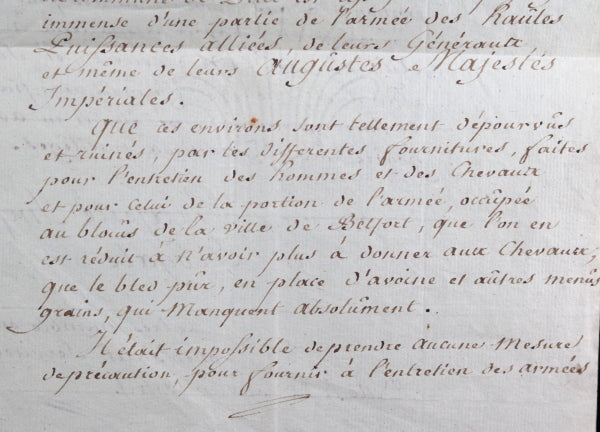 immense d'une partie de l'armée des Haûtes
Puissances alliées, de leurs Généraux
et même de leurs Aûgûstes e Majestés
Impériales.
Que ces environs sont tellement dépourvûs
et ruinés, par les differentes fournitures, faites
pour l'entretien des hommes et des Chevaux
et pour celui de la portion de l'armée, occûpée
au blocûs de la ville de Belfort, que l'on en
est réduit à n'avoir plus à donner aux Chevaux,
que le bled pûr, en place d'avoine et aûtres menûs
grains, qui manquent absolument.
Il était impossible de prendre aucune mesure
de précaution, pour fournir à l'entretien des armées